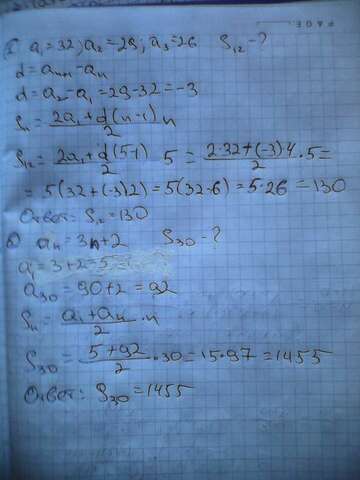 5) a₁=32; a₂=29; a₃=26 S₁₂-?
d=aₙ₊₁-aₙ
d=a₂-a₁=29-32=-3
Sₙ=(2a₁+d(n-1))/2 n
S₁₂=(2a₁+d(5-1))/2 5=(2·32+(-3)4)/2·5=
=5(32+(-3)2)=5(32-6)=5·26=130
Ответ: S₁₂=130
6) aₙ=3n+2 S₃₀-?
a₁=3+2=5
a₃₀=90+2=92
Sₙ=(a₁+aₙ)/2·n
S₃₀=(5+92)/2·30=15·97=1455
Ответ: S₃₀=1455